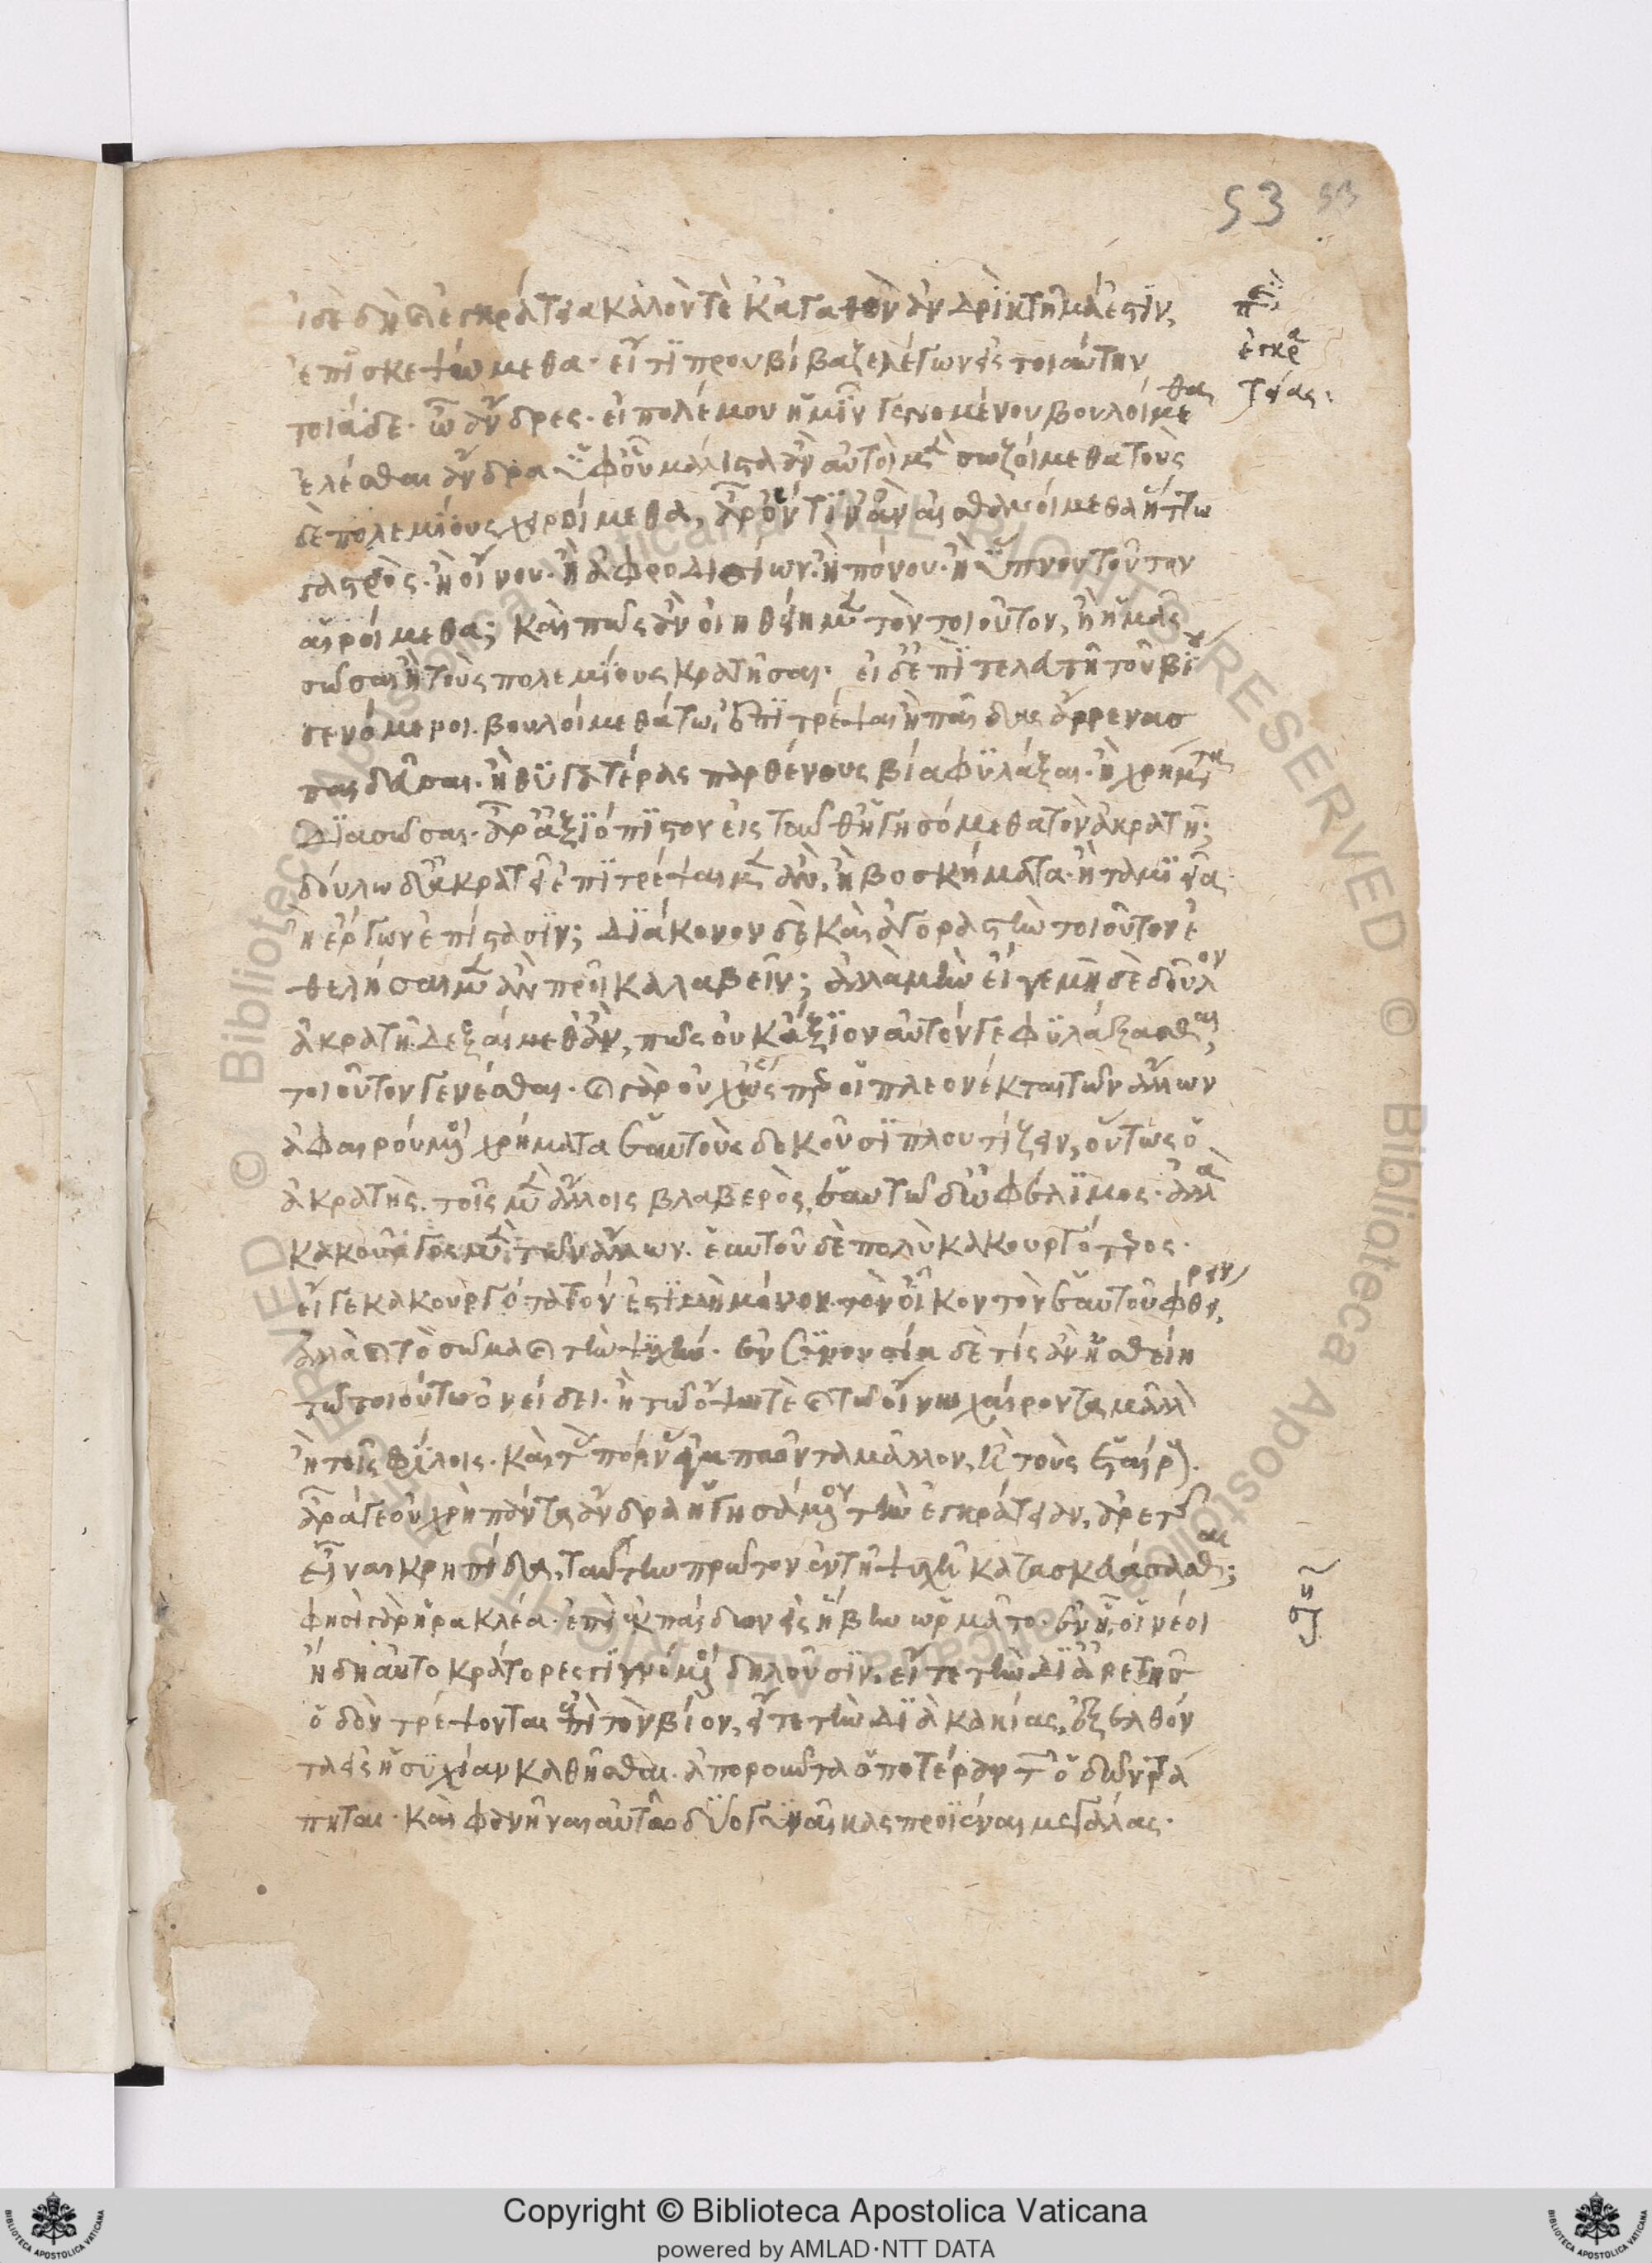 53 53
εἰ δὲ δὴ καὶ ἐγκράτεια καλόν τε κἀγαθὸν ἀνδρὶ κτῆμά ἐστιν,
ἐπισκεψώμεθα· εἴ τι προυβίβαζε λέγων εἰς τοιαύτην
τοιάδε· ὦ ἄνδρες· εἰ πολέμου ἡμῖν γενομένου βουλοίμεθα
ἑλέσθαι ἄνδρα ὑφ' οὗ μάλιστα ἂν αὐτοὶ μὲν σωζοίμεθα τοὺς
δὲ πολεμίους χειροίμεθα, ἆρ' ὅντιν' ἂν αἰσθανοίμεθα ἥττω
γαστρὸς· ἢ οἴνου· ἢ ἀφροδισίων· ἢ πόνου· ἢ ὕπνου τοῦτον
αἱροίμεθα; καὶ πῶς ἂν οἰηθείημεν τὸν τοιοῦτον, ἢ ἡμᾶς
σῶσαι ἢ τοὺς πολεμίους κρατῆσαι· εἰ δ' ἐπὶ τελευτῇ τοῦ βίου
γενόμενοι βουλοίμεθά τῳ, ἐπιτρέψαι ἢ παῖδας ἄρρενας
παιδεῦσαι· ἢ θυγατέρας παρθένους διαφυλάξαι· ἢ χρήματα
διασῶσαι· ἆρ' ἀξιόπιστον εἰς ταῦθ' ἡγησόμεθα τὸν ἀκρατῆ;
δούλω δ' ἀκρατεῖ ἐπιτρέψαιμεν ἂν, ἢ βοσκήματα· ἢ ταμιεῖα
ἢ ἔργων ἐπίστασιν; διάκονον δὲ καὶ ἀγοραστὴν τοιοῦτον ἐ
θελήσαιμεν ἂν προῖκα λαβεῖν; ἀλλὰ μὴν εἴ γε μηδὲ δοῦλον
ἀκρατῆ δεξαίμεθ' ἂν, πῶς οὐκ ἄξιον αὐτόν γε φυλάξασθαι,
τοιοῦτον γενέσθαι· καὶ γὰρ οὐχ ὥσπερ οἱ πλεονέκται τῶν ἄλλων
ἀφαιρούμενοι χρήματα ἑαυτοὺς δοκοῦσι πλουτίζειν, οὕτως ὁ
ἀκρατὴς τοῖς μὲν ἄλλοις βλαβερὸς, ἑαυτῷ δ' ὠφέλιμος· ἀλλὰ
κακοῦργος μὲν τῶν ἄλλων· ἑαυτοῦ δὲ πολὺ κακουργότερος·
εἴ γε κακουργότατόν ἐστι μὴ μόνον τὸν οἶκον τὸν ἑαυτοῦ φθείρειν,
ἀλλὰ καὶ τὸ σῶμα καὶ τὴν ψυχήν· ἐν συνουσίᾳ δὲ τίς ἂν ἡσθείη
τῷ τοιούτω ὀνείδει· ἢ τῷ ὄψῳ τε καὶ τῷ οἴνῳ χαίροντα μᾶλλ
ἢ τοῖς φίλοις· καὶ τὰς πόρνας ἀγαπῶντα μᾶλλον, ἢ τοὺς ἑταίρους·
ἆρά γε οὐ χρὴ πάντα ἄνδρα ἡγησάμενον τὴν ἐγκράτειαν, ἀρετῆς
εἶναι κρηπίδα, ταύτην πρῶτον ἐν τῇ ψυχῇ κατασκευάσασθαι;
φησὶ γὰρ ἡρακλέα· ἐπεὶ ἐκ παίδων εἰς ἥβην ὡρμᾶτο· ἐν ᾗ, οἱ νέοι
ἤδη αὐτοκράτορες γιγνόμενοι δηλοῦσιν, εἴτε τὴν δι' ἀρετῆς
ὁδὸν τρέψονται ἐπὶ τὸν βίον, εἴτε τὴν διὰ κακίας, ἐξελθόν
τα εἰς ἡσυχίαν καθῆσθαι· ἀποροῦντα ὁποτέραν τῶν ὁδῶν τρά
πηται· καὶ φανῆναι αὐτῷ δύο γυναῖκας προϊέναι μεγάλας·
περὶ
ἐγκρα
τείας·
ση